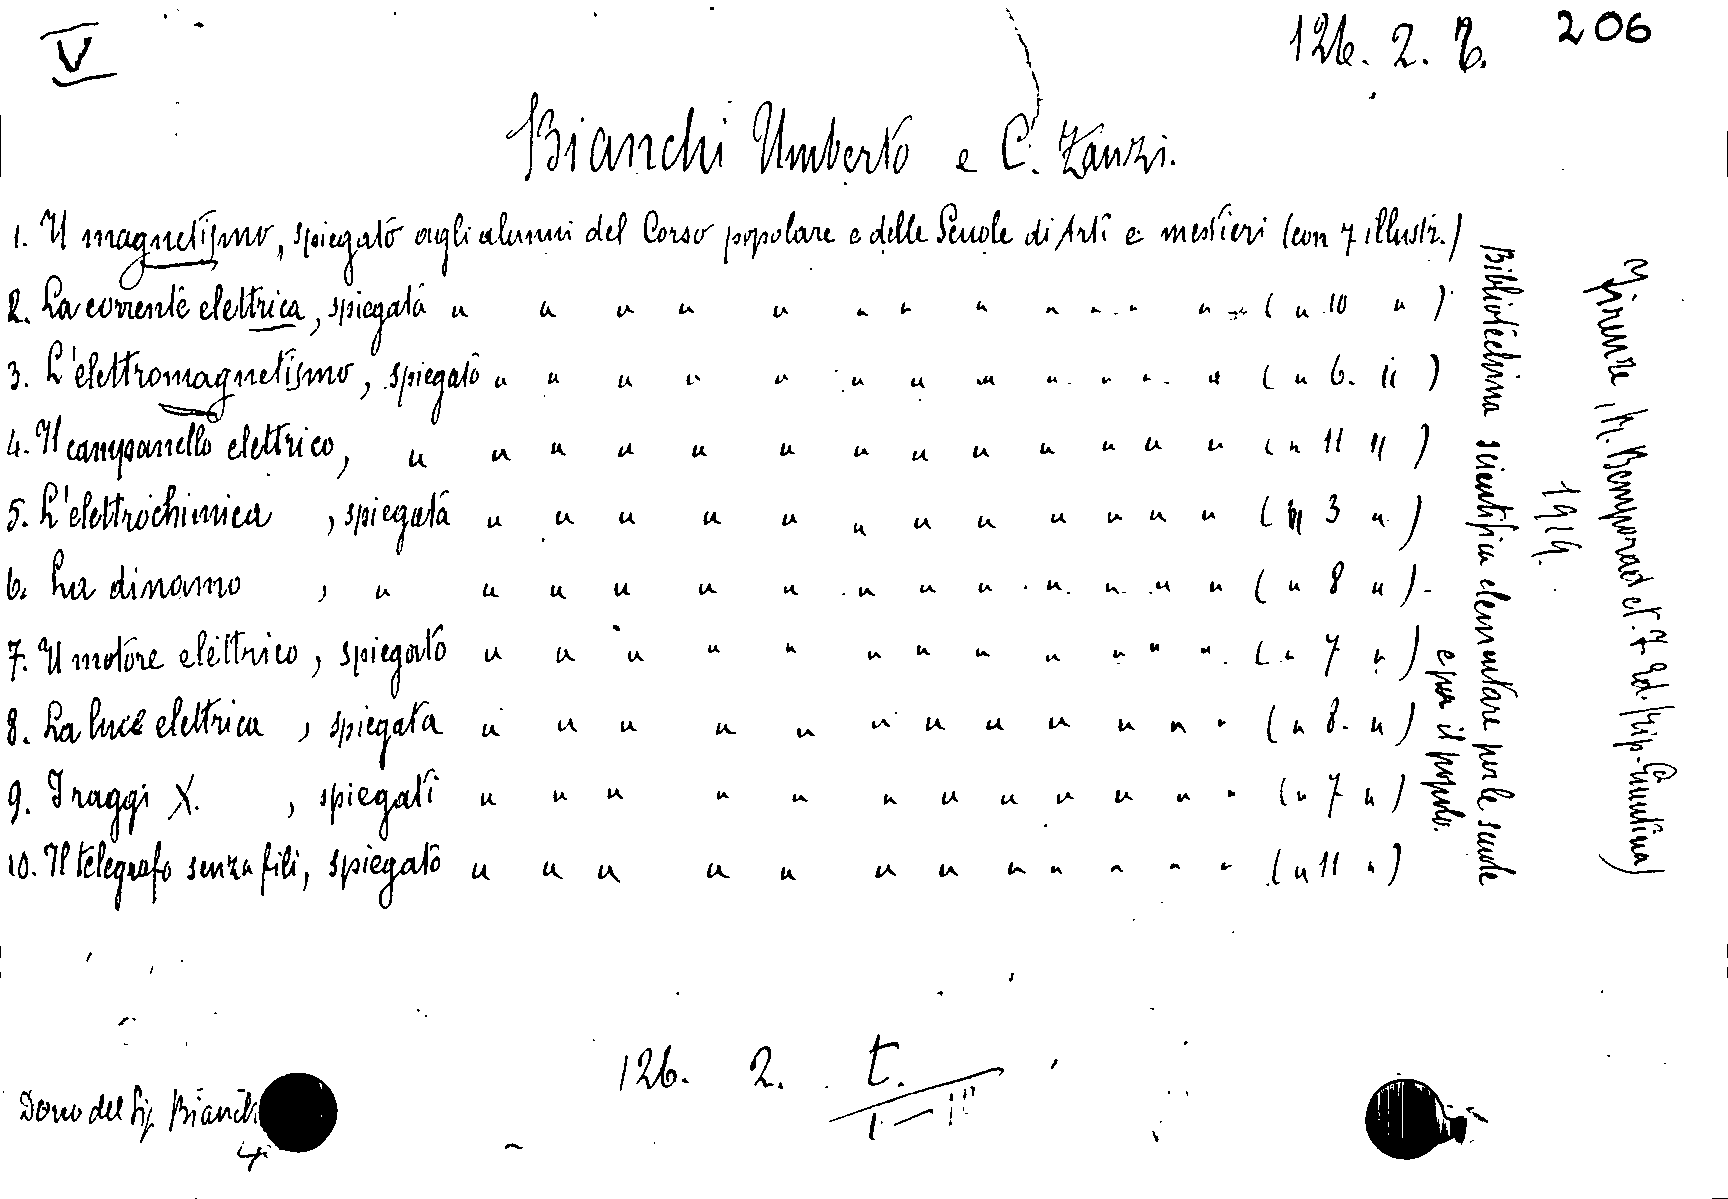 V
126. 2. 7.
206
Bianchi Umberto e C. Zanzi.
1. Il magnetismo, spiegato agli alunni del Corso popolare e delle Scuole di Arti e mestieri (con 7 illustr.)
2. La corrente elettrica, spiegata " " " " " " " " " " " " " ( " 10 " )
3. L'elettromagnetismo, spiegato " " " " " " " " " " " " " ( " 6. " )
4. Il campanello elettrico, " " " " " " " " " " " " " ( " 11 " )
5. L'elettrochimica , spiegata " " " " " " " " " " " " ( " 3 " )
6. La dinamo , " " " " " " " " " " " " " ( " 8 " ).
7. Il motore elettrico, spiegato " " " " " " " " " " " ( " 7 " )
8. La luce elettrica , spiegata " " " " " " " " " " " " ( " 8. " )
9. I raggi X. , spiegati " " " " " " " " " " " " ( " 7 " )
10. Il telegrafo senza fili, spiegato " " " " " " " " " " " " ( " 11 " )
Bibliotechina scientifica elementare per le scuole
e per il popolo.
Firenze, R. Bemporad et. F. Ed. (Tip. Giuntina)
1914.
126. 2. t.
1 — 10
Dono del Sig. Bianchi